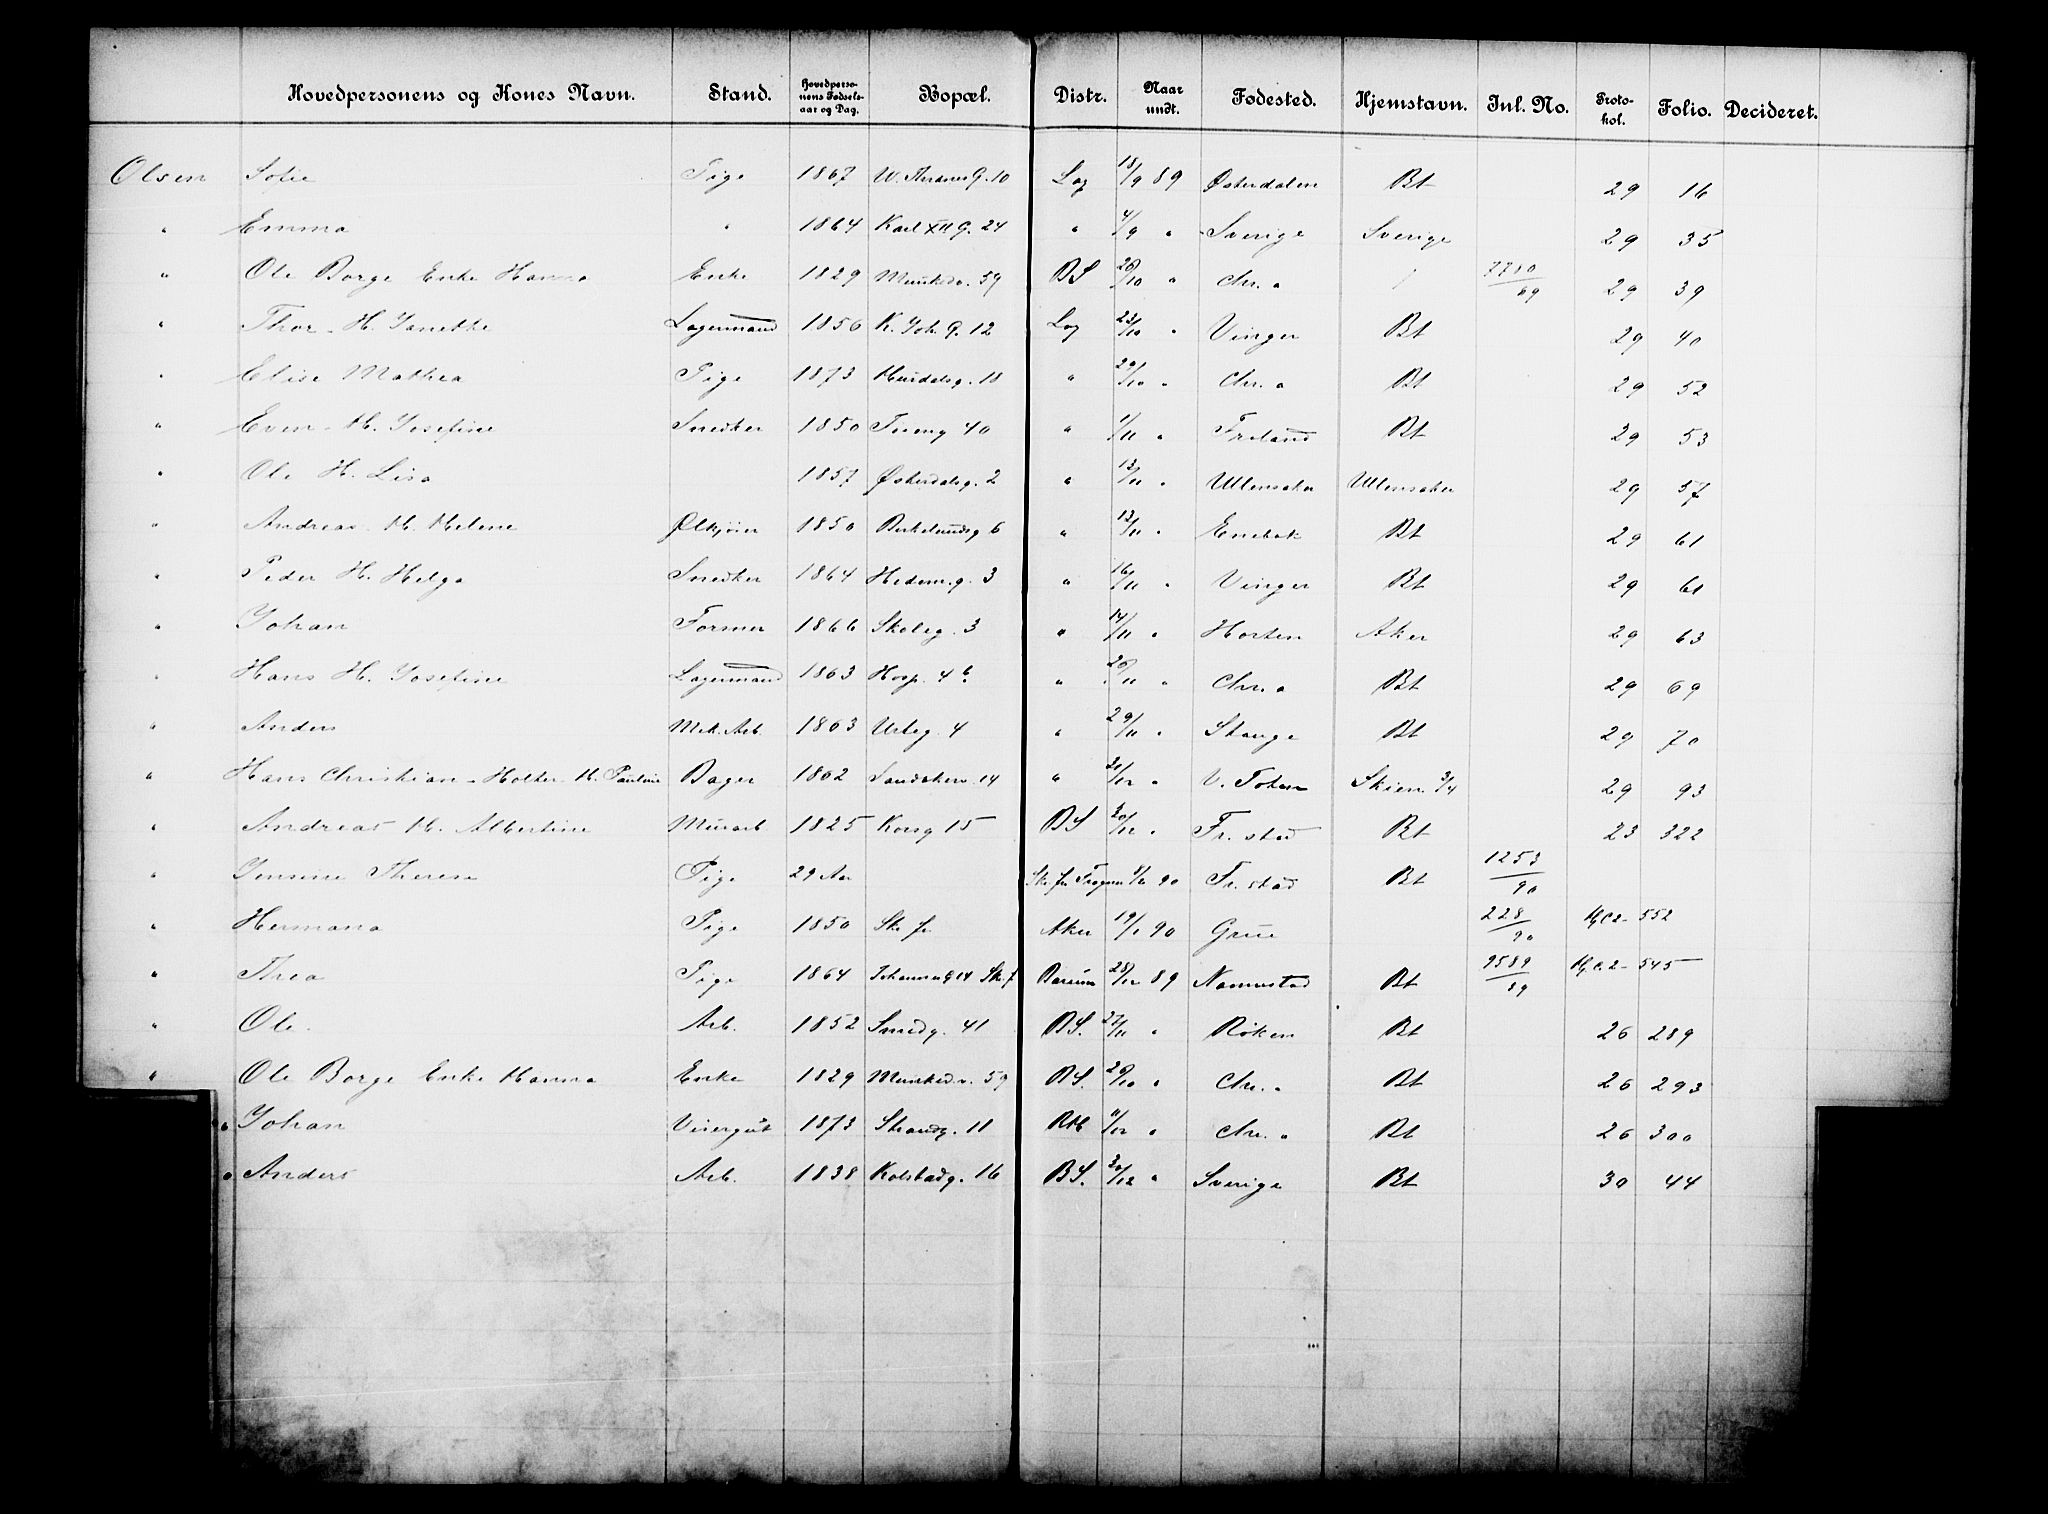 Hovedpersonens og Kones Navn. Stand. Hovedperso-nens Fødsels-aar og Dag. Bopæl. Distr. Naar undt. Fødested. Hjemstavn. Jnl. No. Proto-kol. Folio. Decideret.
Olsen Sofie Pige 1867 W. Thranes G. 10 Lag 18/9 89 Østerdalen Bt 29 16
" Emma " 1864 Karl XII G. 24 " 4/9 " Sverige Sverige 29 35
" Ole Borge Enke Hanna Enke 1829 Munkedv. 59 BS 26/10 " Chr.a 7780/89 29 39
" Thor H. Janette Lagermand 1856 K. Joh. G. 12 Lag 23/10 " Vinger Bt 29 40
" Elise Mathea Pige 1873 Hurdalsg. 18 " 29/10 " Chr.a Bt 29 52
" Even H. Josefine Snedker 1850 40 " 1/11 " Froland Bt 29 53
" Ole H. Lisa 1857 Østerdalsg. 2 " 12/11 " Ullensaker Ullensaker 29 57
" Andreas H. Helene Ølkjører 1850 Birkelundsg 6 " 13/11 " Enebak Bt 29 61
" Peder H. Helga Snedker 1864 Hedem.g. 3 " 16/11 " Vinger Bt 29 61
" Johan Former 1866 Skoleg. 3 " 14/11 " Horten Aker 29 63
" Hans H. Josefine Lagermand 1863 Hosp. 4 b " 26/11 " Chr.a Bt 29 69
" Anders Mek. Arb. 1863 Urteg. 4 " 29/11 " Stange Bt 29 70
" Hans Christian Holter H. Pauline Bager 1862 Sandakerv. 14 " 21/12 " V. Toten Skien 3/4 29 93
" Andreas H. Albertine Murarb 1825 Korsg 15 BS 30/12 " Fr.stad Bt 23 322
" Jensine Therese Pige 29 Aar Sk. fr Frogner 90 Fr.stad Bt 1253/90
" Hermana Pige 1850 Sk. fr Aker 19/1 90 Grue 228/90 552
" Thea Pige 1864 Johannes G 14 Sk. f Bærum 28/12 89 Nannestad Bt 9589/89 545
" Ole Arb. 1852 Smedg. 41 BS. 27/11 " Røken Bt 26 289
" Ole Borge Enke Hanna Enke 1829 Munkedv. 59 BS. 26/10 " Chr.a Bt 26 293
" Johan Visergut 1873 Strandg. 11 11/12 " Chr.a Bt 26 300
" Anders Arb. 1838 Kolstadg. 16 BS. 30/12 " Sverige Bt 30 44